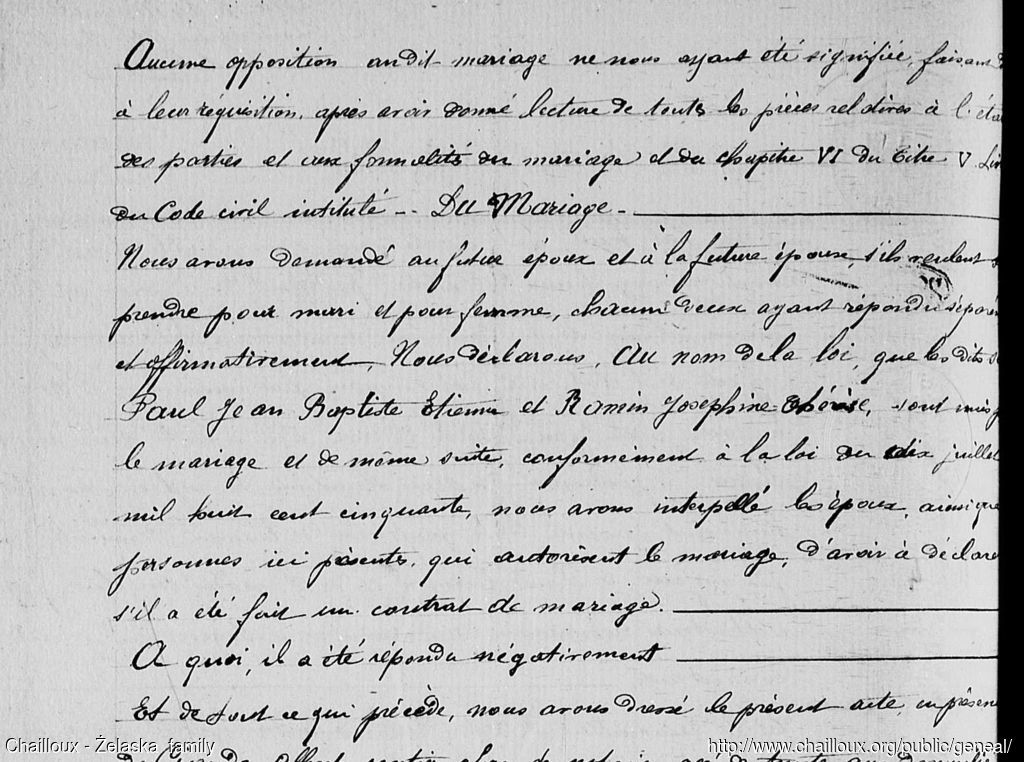 Aucune opposition audit mariage ne nous ayant été signifiée, faisant d
à leur réquisition, après avoir donné lecture de toutes les pièces relatives à l'éta
des parties et aux formalités du mariage et du chapitre VI du titre V Liv
du Code civil intitulé -- Du Mariage -
Nous avons demandé au futur époux et à la future épouse, s'ils veulent
prendre pour mari et pour femme, chacun deux ayant répondu séparé
et affirmativement, Nous déclarons, Au nom de la loi, que les dits
Paul Jean Baptiste Etienne et Ramin Joséphine Thérèse, sont unis p
le mariage et de même suite, conformément à la loi du dix juillet
mil huit cent cinquante, nous avons interpellé les époux, ainsi que
personnes ici présents, qui autorisent le mariage, d'avoir à déclare
s'il a été fait un contrat de mariage.
A quoi, il a été répondu négativement
Et de tout ce qui précède, nous avons dressé le présent acte, en présenc
Chailloux - Żelaska family
http://www.chailloux.org/public/geneal/